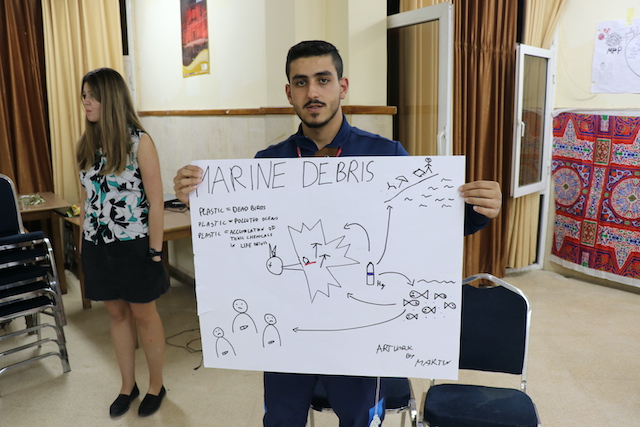 MARINE DEBRIS
PLASTIC = DEAD BIRDS
PLASTIC = POLLUTED OCEANS
PLASTIC = ACCUMULATION OF
TOXIC CHEMICALS
IN LIFE
Hg
ARTWORK
BY
MARTIN